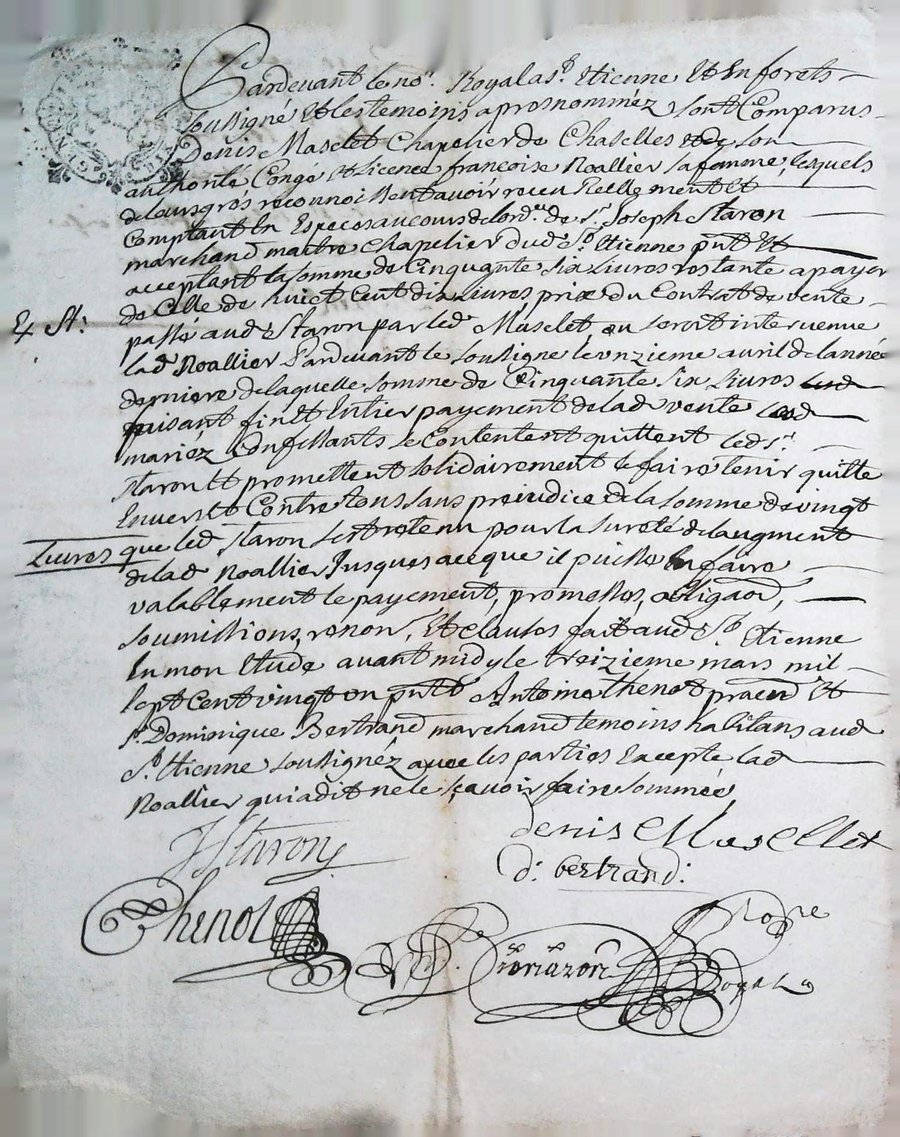 Pardevant le no.re Royal a S.t Etienne Et En forets
soussigné Et les temoins apres nommez sont Comparus
Denis Masclet Chapelier de Chaselles et de son
authorité Congé et licence francoise Noallier sa femme, lesquels
de leurs gres reconnoissent avoir receu Reellement Et
Comptant En Especes au cours de l'ord.ce de S.r Joseph Staron
marchand maitre Chapelier dud S.t Etienne pnt Et
acceptant la somme de Cinquante six Livres restante a payer
de Celle de huict Cent dix Livres prix du Contrat de vente
passé aud S.t Staron par led Masclet, ou seroit intervenue
lad Noallier Pardevant le soussigné le onzieme avril de l'année
derniere de laquelle somme de Cinquante six Livres
faisant fin Et Entier payement de lad vente led
mariéz Confessants se Contentent quittent led S.r
Staron Et promettent solidairement le faire tenir quitte
Envers Et Contre tous sans prejudice de la somme de vingt
Livres que led Staron s'est retenu pour la sureté de l'augment
de lad Noallier Jusques ace que il puisse En faire
valablement le payement, promesses, obligaon,
soumissions, renon, Et clauses fait aud S.t Etienne
En mon Etude avant midy le treizieme mars mil
sept Cent vingt un pntt Antoine thenot praend Et
s.r Dominique Bertrand marchand temoins habitans aud
S.t Etienne soussignéz avec les parties Excepté lad
Noallier qui a dit ne le sçavoir faire sommée
JStaron
denis Masellet
d: bertrand:
Thenot
no.re
Royal